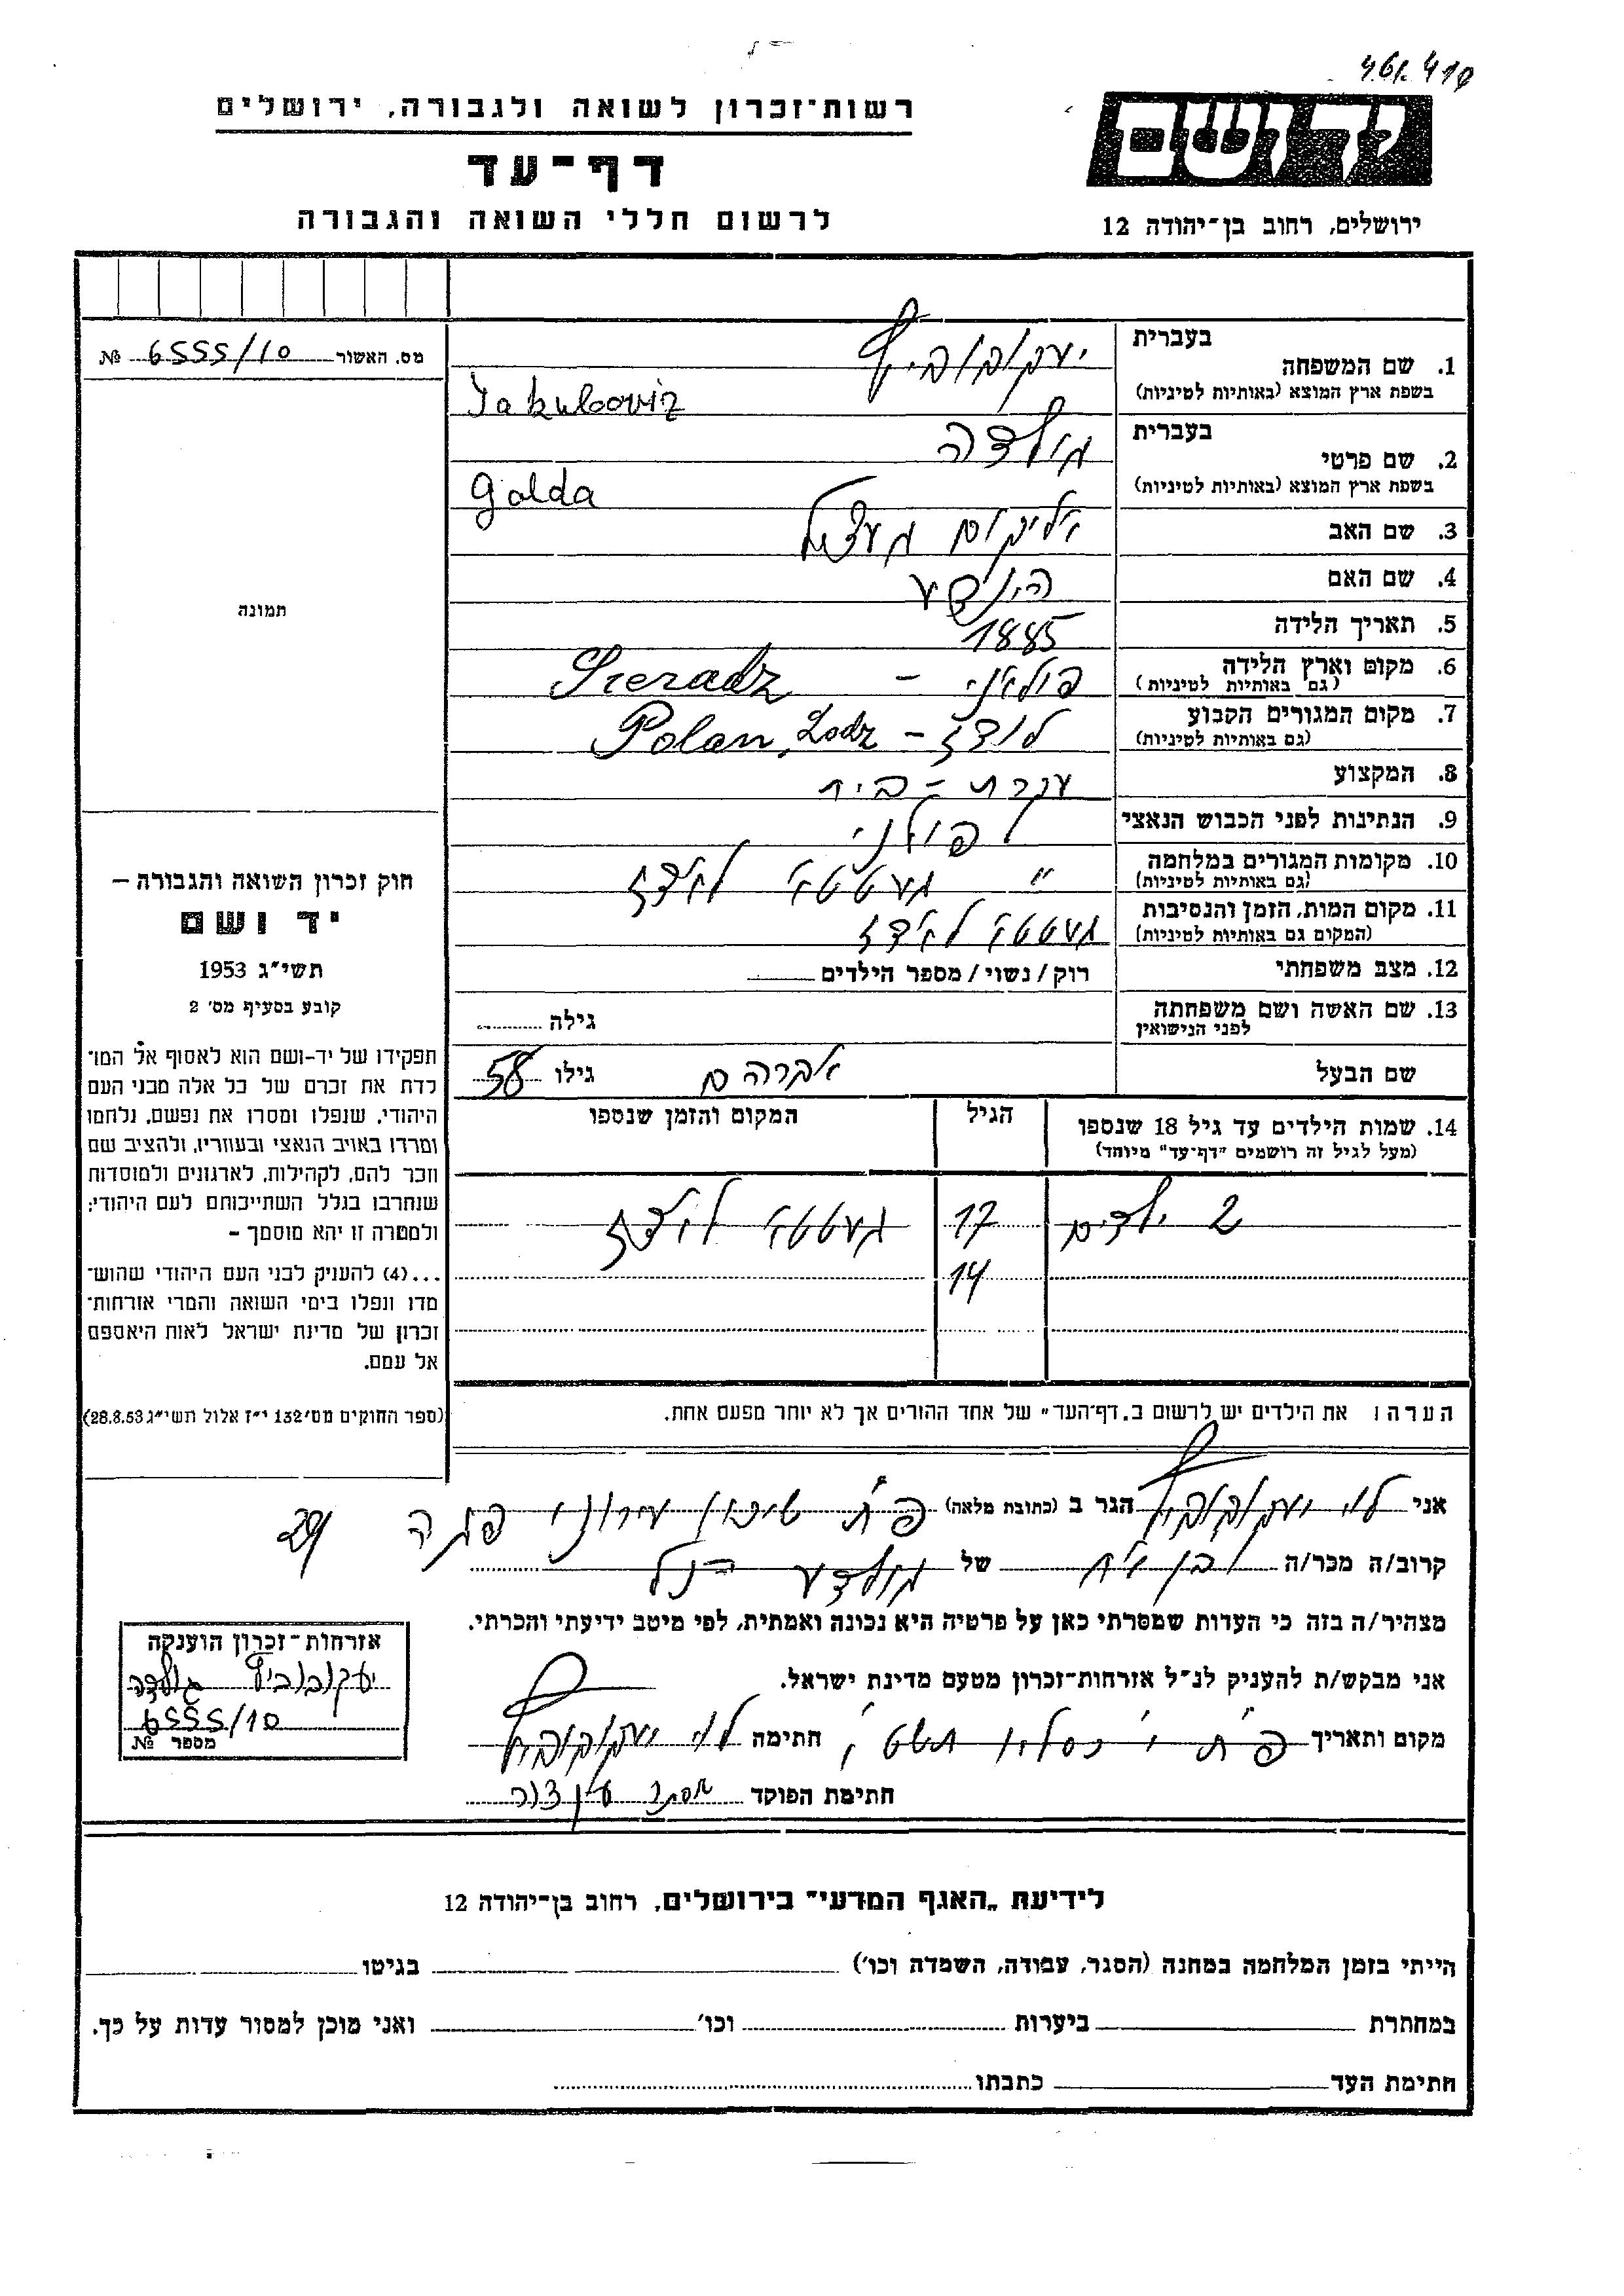 רשות־זכרון לשואה ולגבורה, ירושלים
דף־עד
לרשום חללי השואה והגבורה
יד ושם
ירושלים, רחוב בן־יהודה 12
מס. האשור 6555/10 №
תמונה
חוק זכרון השואה והגבורה –
יד ושם
תשי״ג 1953
קובע בסעיף מס׳ 2
תפקידו של יד-ושם הוא לאסוף אל המו־
לדת את זכרם של כל אלה מבני העם
היהודי, שנפלו ומסרו את נפשם, נלחמו
ומרדו באויב הנאצי ובעוזריו, ולהציב שם
וזכר להם, לקהילות, לארגונים ולמוסדות
שנחרבו בגלל השתייכותם לעם היהודי;
ולמטרה זו יהא מוסמך –
...(4) להעניק לבני העם היהודי שהוש־
מדו ונפלו בימי השואה והמרי אזרחות־
זכרון של מדינת ישראל לאות היאספם
אל עמם.
(ספר החוקים מס׳ 132 י״ז אלול תשי״ג 28.8.53)
1. שם המשפחה בעברית יעקובוביץ
בשפת ארץ המוצא (באותיות לטיניות) Jakuboviz
2. שם פרטי בעברית גולדה
בשפת ארץ המוצא (באותיות לטיניות) Golda
3. שם האב אליקום געציל
4. שם האם הינדע
5. תאריך הלידה 1885
6. מקום וארץ הלידה פולאני – Sieradz
(גם באותיות לטיניות)
7. מקום המגורים הקבוע לודז – Polan, Lodz
(גם באותיות לטיניות)
8. המקצוע עקרת – בית
9. הנתינות לפני הכבוש הנאצי פולני
10. מקומות המגורים במלחמה ״ געטטא לאדז
(גם באותיות לטיניות)
11. מקום המות, הזמן והנסיבות געטטא לאדז
(המקום גם באותיות לטיניות)
12. מצב משפחתי רוק / נשוי / מספר הילדים
13. שם האשה ושם משפחתה גילה
לפני הנישואין
שם הבעל אברהם גילו 58
14. שמות הילדים עד גיל 18 שנספו הגיל המקום והזמן שנספו
(מעל לגיל זה רושמים "דף־עד" מיוחד)
2 ילדים 17 געטטא לאדז
14
הערה: את הילדים יש לרשום ב„דף־העד״ של אחד ההורים אך לא יותר מפעם אחת.
אני לוי יעקובוביץ הגר ב (כתובת מלאה) פ״ת שיכון עירוני פתה 29
קרוב/ה מכר/ה של גולדע הנ״ל
מצהיר/ה בזה כי העדות שמסרתי כאן על פרטיה היא נכונה ואמתית, לפי מיטב ידיעתי והכרתי.
אני מבקש/ת להעניק לנ״ל אזרחות־זכרון מטעם מדינת ישראל.
מקום ותאריך פ״ת י׳ כסליו תשט״ו חתימה לוי יעקובוביץ
חתימת הפוקד אסתר
אזרחות־זכרון הוענקה
יעקובוביץ גולדה
6555/10
מספר №
לידיעת „האגף המדעי״ בירושלים, רחוב בן־יהודה 12
הייתי בזמן המלחמה במחנה (הסגר, עבודה, השמדה וכו׳) בגיטו
במחתרת ביערות וכו׳ ואני מוכן למסור עדות על כך.
חתימת העד כתבתו